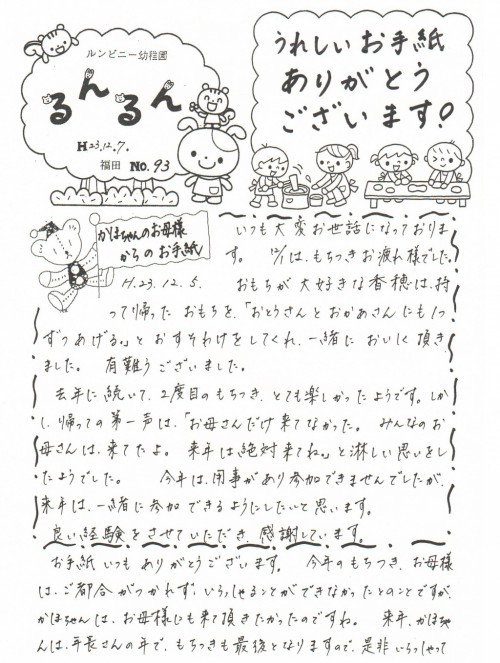 ルンビニー幼稚園
るんるん
H23.12.7.
福田 No.93
うれしいお手紙
ありがとう
ございます!
かほちゃんのお母様
からのお手紙
H.23.12.5.
いつも大変お世話になっておりま
す。 は、もちつきお疲れ様でした。
おもちが大好きな香穂は、持
って帰ったおもちを、「おとうさんとおかあさんにも1つ
ずつあげる。」とおすそわけをしてくれ、一緒においしく頂き
ました。 有難うございました。
去年に続いて、2度目のもちつき、とても楽しかったようです。しか
し、帰っての第一声は、「お母さんだけ来てなかった。 みんなのお
母さんは、来てたよ。 来年は絶対来てね。」と淋しい思いをし
たようでした。 今年は、用事があり参加できませんでしたが、
来年は、一緒に参加できるようにしたいと思います。
良い経験をさせていただき、感謝しています。
お手紙いつもありがとうございます。 今年のもちつき、お母様
は、ご都合がつかれず、いらっしゃることができなかったとのことですが、
かほちゃんは、お母様にも来て頂きたかったのですね。 来年、かほちゃ
んは、年長さんの年で、もちつきも最後となりますので、是非いらっしゃって